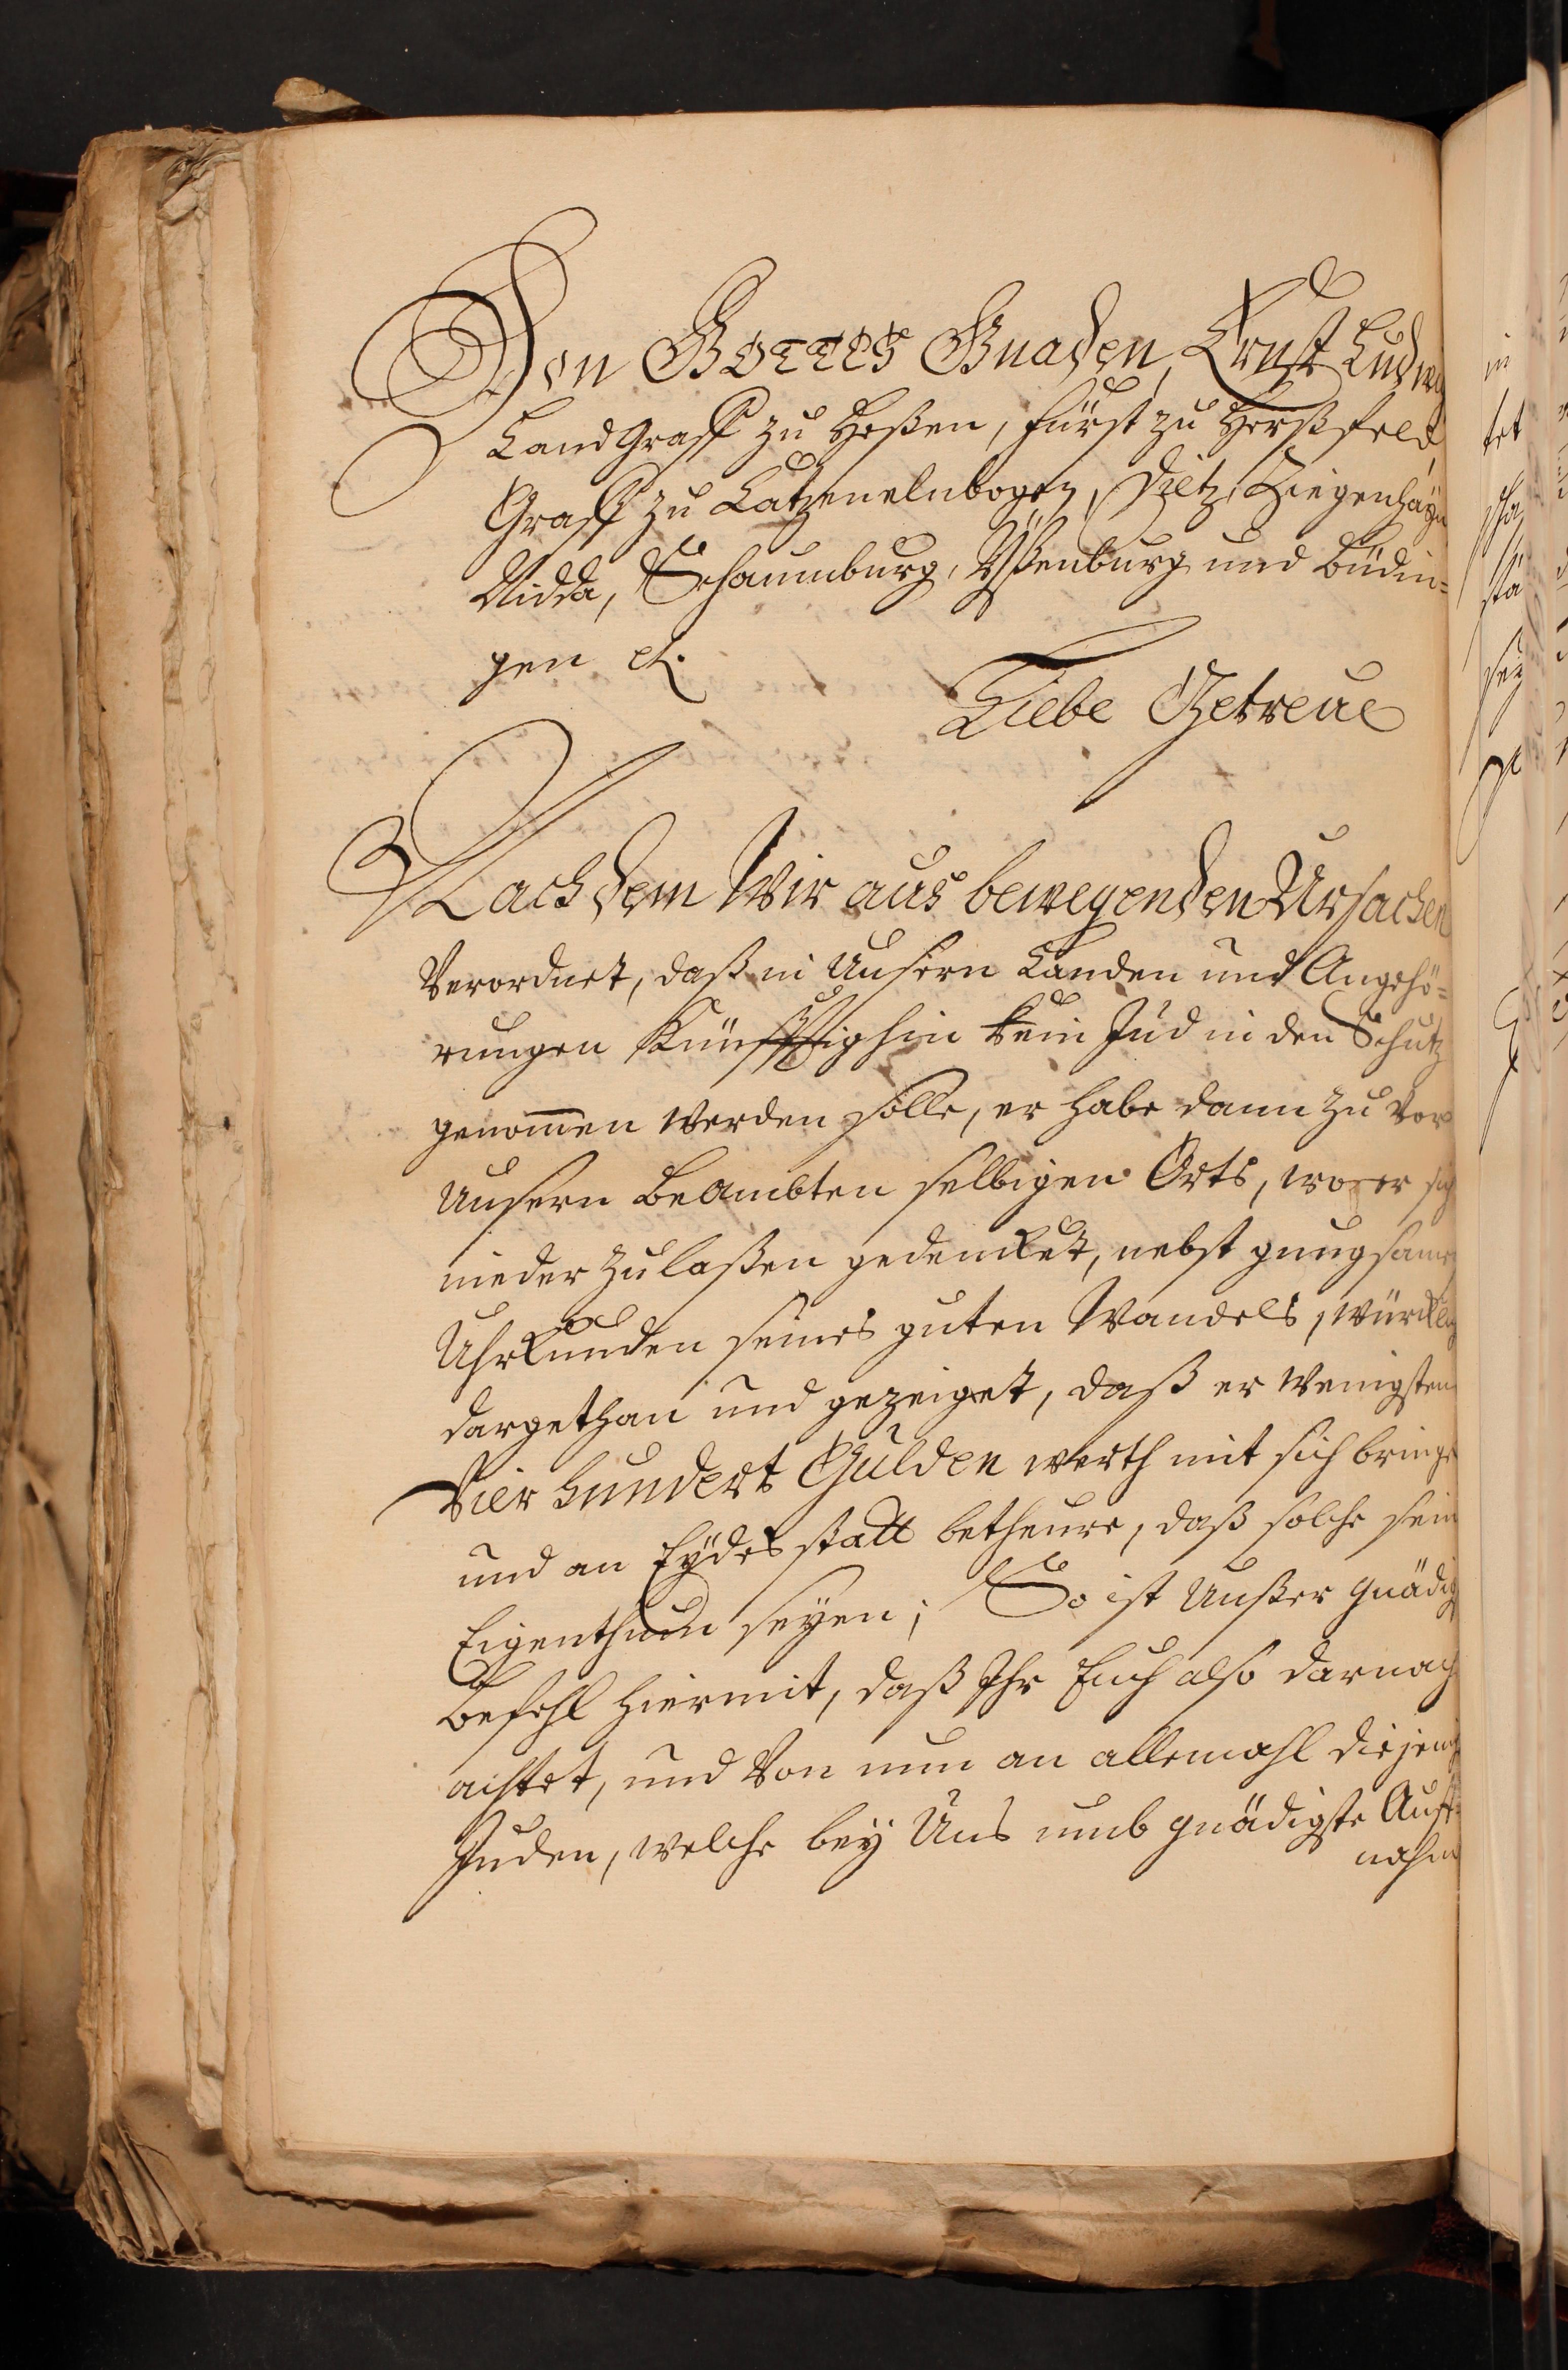 Von GOTTES Gnaden, Ernst Ludwig
Landgraff zu Heßen, Fürst zu Herßfeld,
Graff zu Catzenelnbogen, Dietz, Ziegenhayn
Nidda, Schaumburg, Ysenburg und Büdin=
gen etc.
Liebe Getreue
Nachdem Wir aus bewegenden Ursachen
verordnet, daß in Unsern Landen und Angehö=
rungen Künfftighin kein Jud in den Schutz
genom̅en werden solle, er habe dann zu vor
Unsern Beambten selbigen Orts, wo er sich
nieder zulaßen gedencket, nebst gnugsamen
Uhrkunden seines guten Wandels, würcklich
dargethan und gezeiget, daß er wenigstens
Vier hundert Gulden werth mit sich bringe
und an Eydes statt betheure, daß solche sein
Eigenthum seyen; So ist Unßer gnädigst
Befehl hiermit, daß Ihr Euch also darnach
achtet, und von nun an allemahl diejenige
Juden, welche bey Uns umb gnädigste Auff=
nahm
in
tet
scha
sta
sey